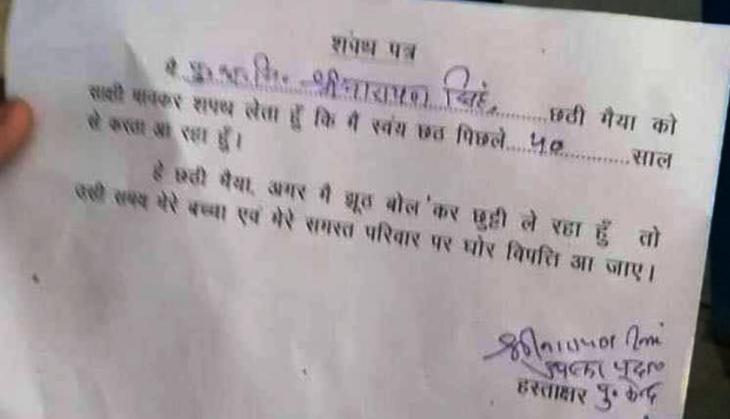 शपथ पत्र
मै पु०अ०नि० श्रीनारायण सिंह, छठी मैया को
साक्षी मानकर शपथ लेता हूँ कि मै स्वंय छठ पिछले ५० साल
से करता आ रहा हूँ।
हे छठी मैया, अगर मै झूठ बोल कर छुट्टी ले रहा हूँ तो
उसी समय मेरे बच्चा एवं मेरे समस्त परिवार पर घोर विपत्ति आ जाए।
श्रीनारायण
हस्ताक्षर पु० केन्द्र